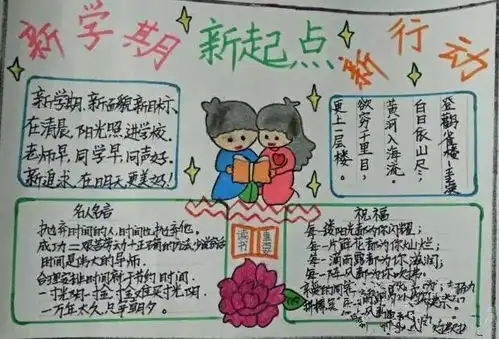 新学期 新起点 新行动
新学期、新面貌新目标、
在清晨,阳光照进学校
老师早,同学早,问声好.
新追求,在明天更美好!
登鹳雀楼
白日依山尽.
黄河入海流.
欲穷千里目,
更上一层楼。
读书
名人名言
抛弃时间的人,时间也抛弃他。
成功二艰苦劳动十正确的方法少说空话
时间是伟大的导师.
合理安排时间就等于节约时间.
一寸光阴一寸金,寸金难买寸光阴
一万年太久,只争朝夕。
祝福
每一缕阳光都为你闪耀;
每一片鲜花都为你灿烂
每一滴雨露都为你滋润;
每一阵风都为你吹拂.